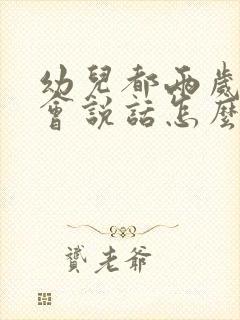 幼兒都兩歲
會說話怎麼
贊老爺